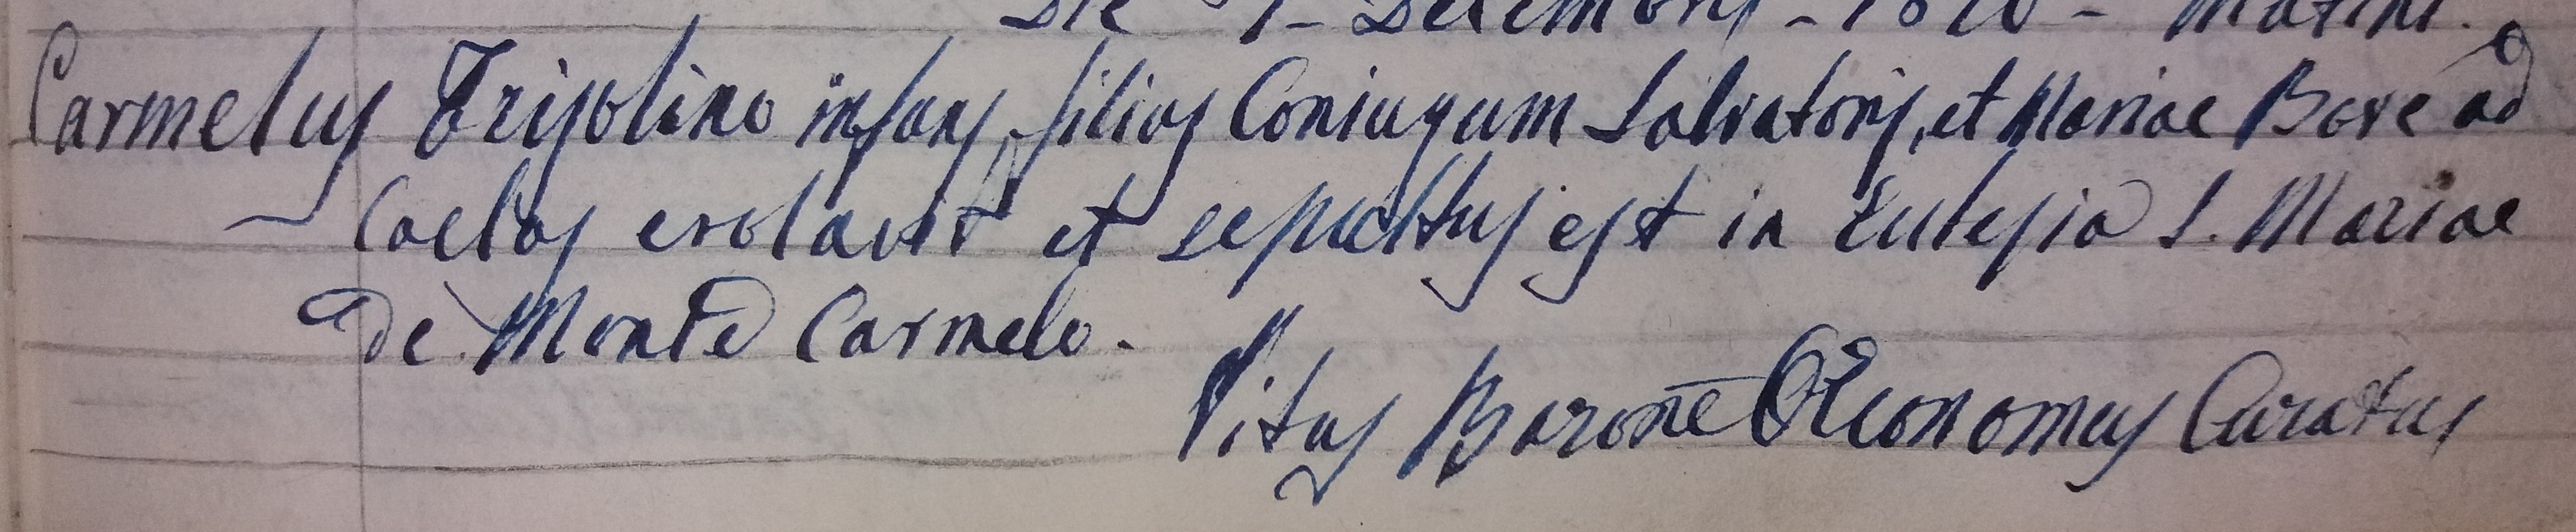 Die Decembris - 18 - Matini.
Carmelus Trisolino infans filius Coniugum Salvatoris, et Mariae Bove ad
Caelos evolavit et sepultus est in Eclesia S. Mariae
de Monte Carmelo.
Vitus Barone Oeconomus Curatus